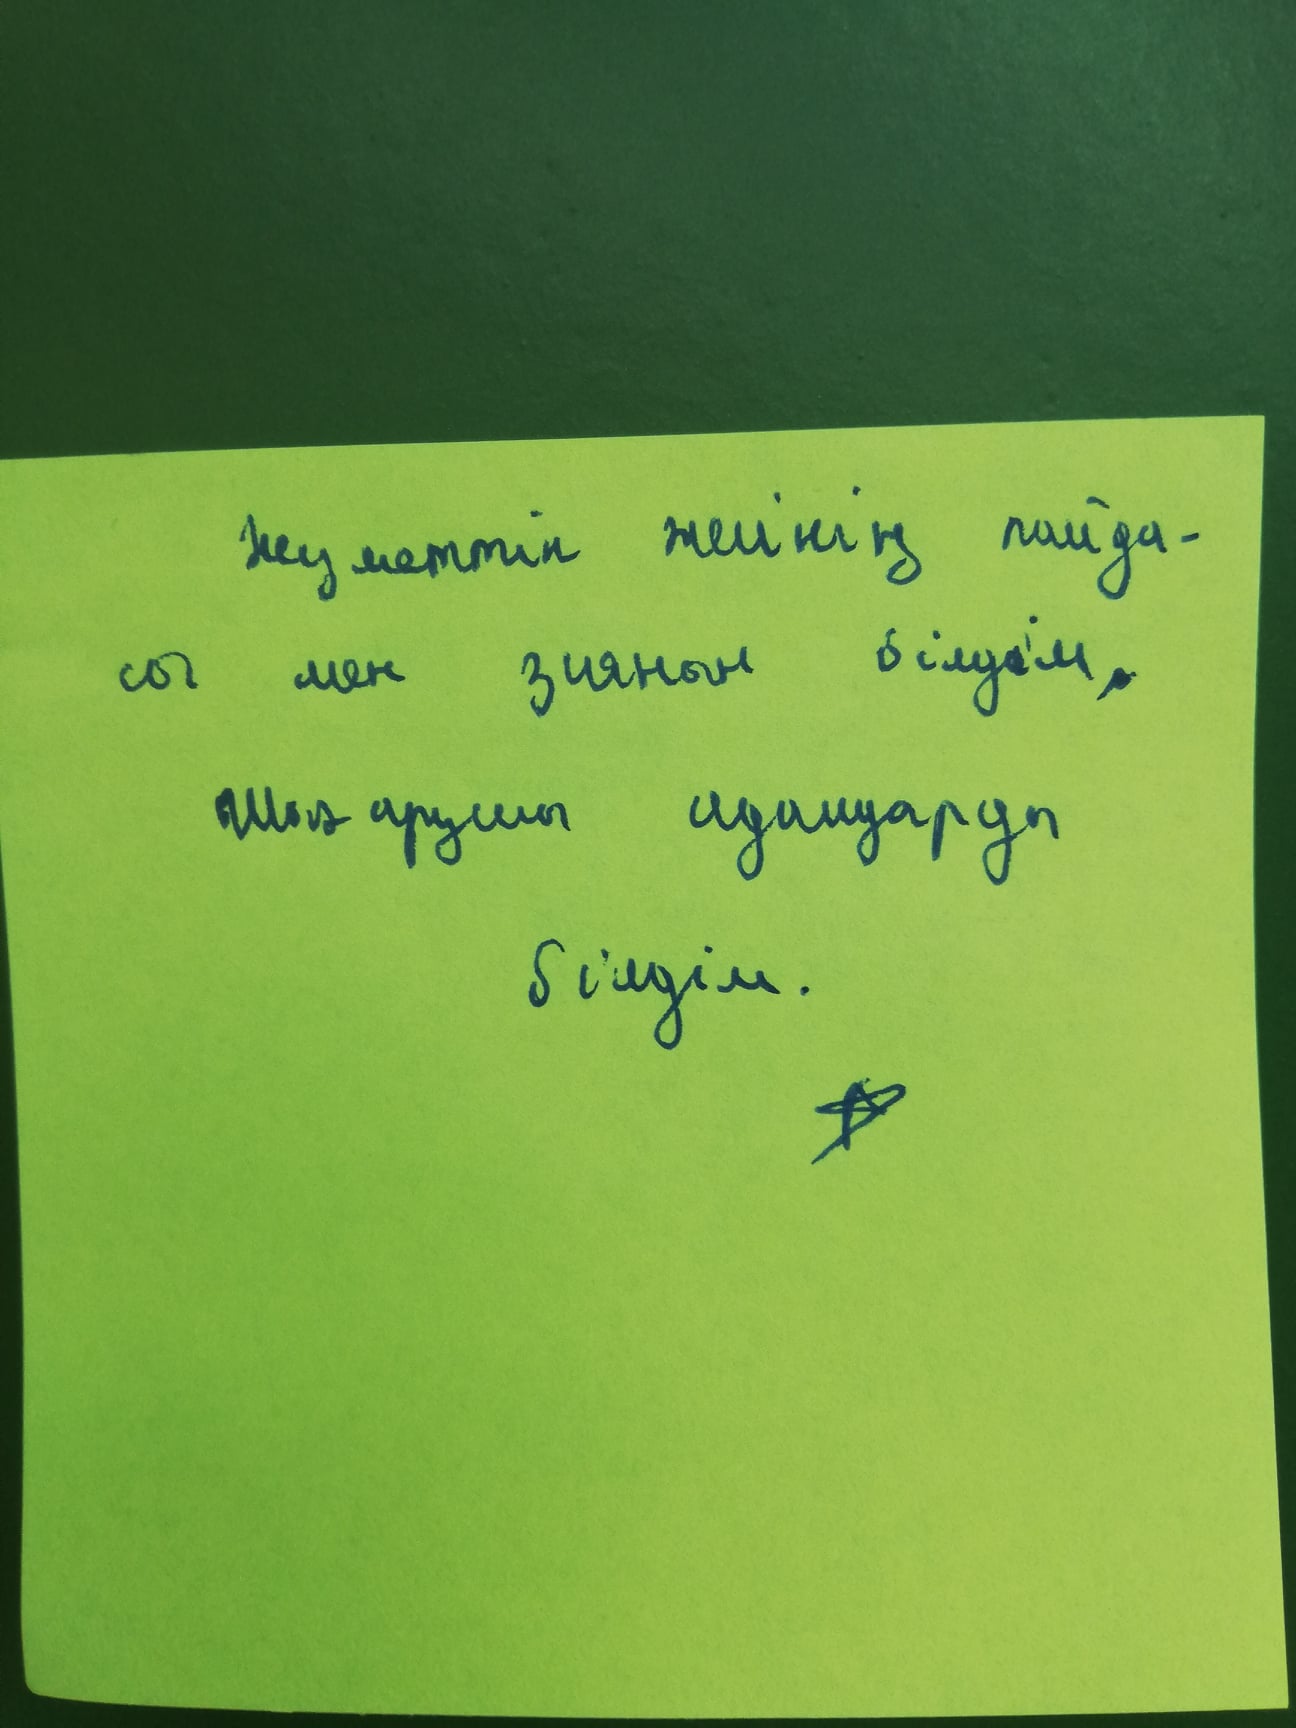 Неуметтін желінің пайда-
сы мен зиянын білдім,
Шығарушы адамдарды
білдім.